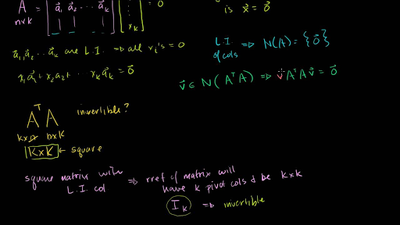 A = [ a⃗₁ a⃗₂ ... a⃗ₖ ] [ xₖ ] = 0⃗
n×k
is x⃗ = 0⃗
a⃗₁, a⃗₂ ... a⃗ₖ are L.I. ⇒ all xᵢ's = 0
L.I. of cols ⇒ N(A) = {0⃗}
x₁a⃗₁ + x₂a₂ + xₖa⃗ₖ = 0⃗
v⃗ ∈ N(AᵀA) ⇒ v⃗ᵀAᵀAv⃗ = 0⃗
AᵀA invertible?
k×n n×k
k×k ← square
square matrix with L.I. col ⇒ rref of matrix will have k pivot cols & be k×k
Iₖ ⇒ invertible